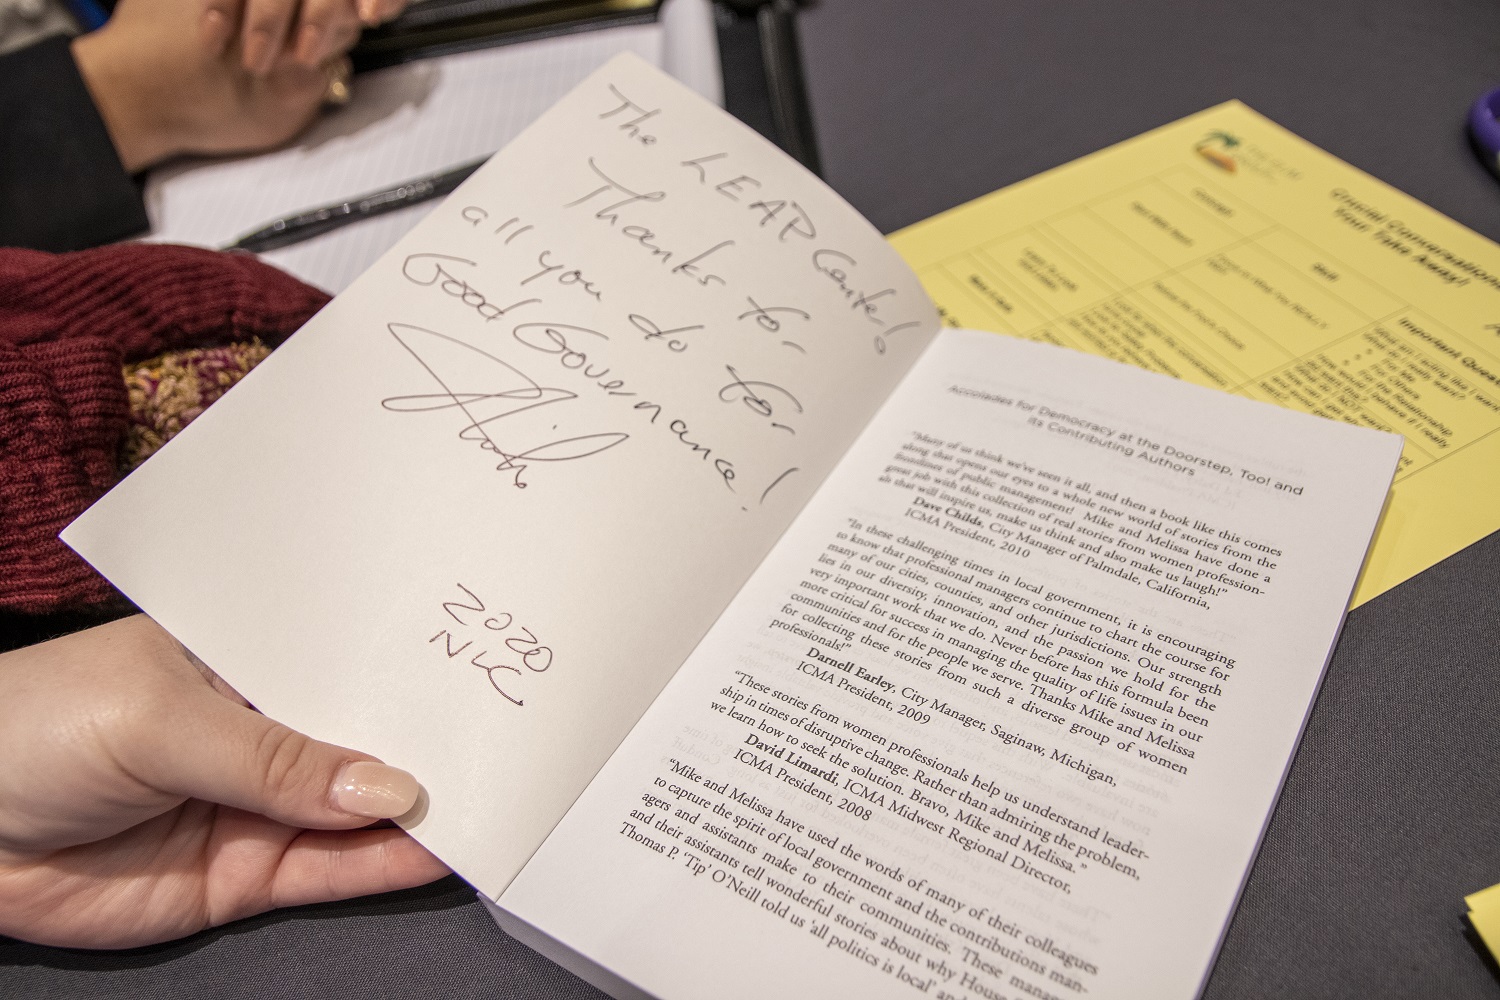 The LEAP Center!
Thanks to-
all you do for
Good Governance!
2020
NLC
Accolades for Democracy at the Doorstep, Too! and
its Contributing Authors
"Many of us think we've seen it all, and then a book like this comes
along that opens our eyes to a whole new world of stories from the
frontlines of public management! Mike and Melissa have done a
great job with this collection of real stories from women profession-
als that will inspire us, make us think and also make us laugh!"
Dave Childs, City Manager of Palmdale, California,
ICMA President, 2010
"In these challenging times in local government, it is encouraging
to know that professional managers continue to chart the course for
many of our cities, counties, and other jurisdictions. Our strength
lies in our diversity, innovation, and the passion we hold for the
very important work that we do. Never before has this formula been
more critical for success in managing the quality of life issues in our
communities and for the people we serve. Thanks Mike and Melissa
for collecting these stories from such a diverse group of women
professionals!"
Darnell Earley, City Manager, Saginaw, Michigan,
ICMA President, 2009
"These stories from women professionals help us understand leader-
ship in times of disruptive change. Rather than admiring the problem,
we learn how to seek the solution. Bravo, Mike and Melissa."
David Limardi, ICMA Midwest Regional Director,
ICMA President, 2008
"Mike and Melissa have used the words of many of their colleagues
to capture the spirit of local government and the contributions man-
agers and assistants make to their communities. These managers
and their assistants tell wonderful stories about why House
Thomas P. 'Tip' O'Neill told us 'all politics is local' and
Crucial Conversations
Your Take Away!
Skill
Important Ques